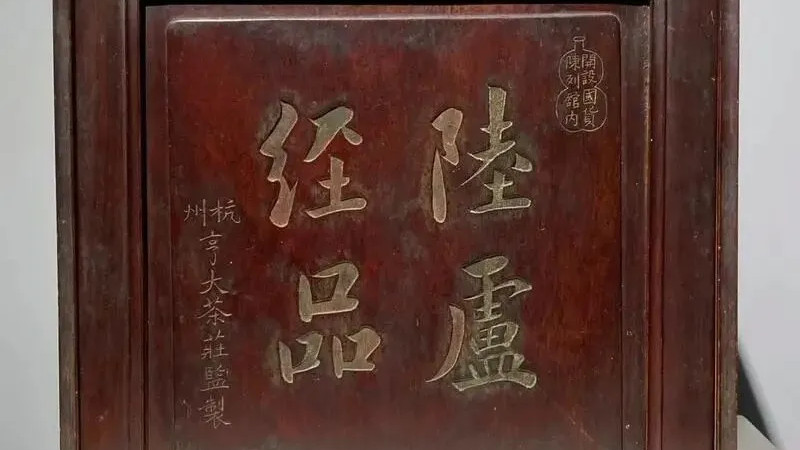 開設國貨陳列館內
陸經
盧品
杭州亨大茶莊監製